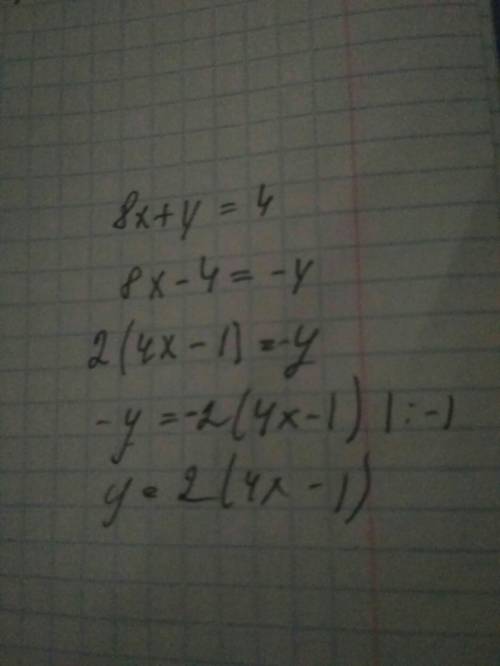 8x+y = 4
8x-4 = -y
2(4x-1) = -y
-y = -2(4x-1) |:-1
y = 2(4x-1)